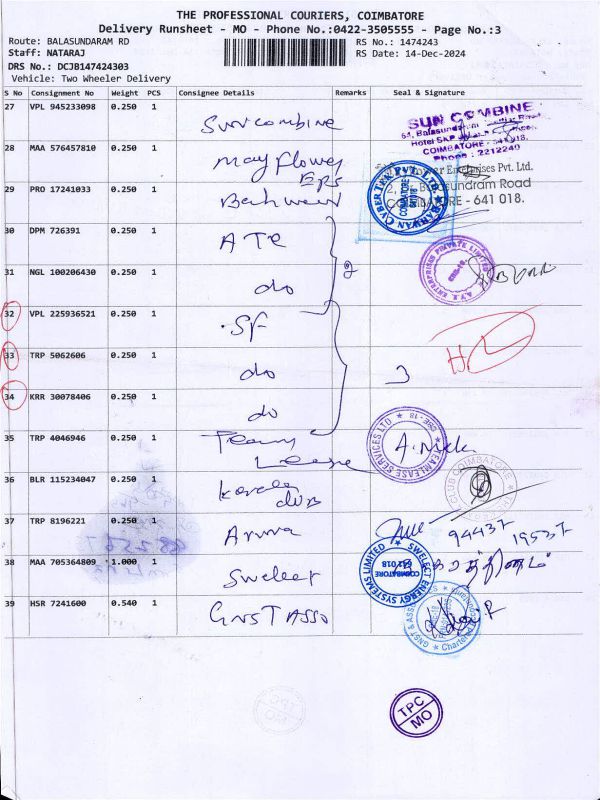 THE PROFESSIONAL COURIERS, COIMBATORE
Delivery Runsheet - MO - Phone No.:0422-3505555 - Page No.:3
Route: BALASUNDARAM RD RS No.: 1474243
Staff: NATARAJ RS Date: 14-Dec-2024
DRS No.: DCJB147424303
Vehicle: Two Wheeler Delivery
S No Consignment No Weight PCS Consignee Details Remarks Seal & Signature
27 VPL 945233098 0.250 1 Suncombine
SUN COMBINE
COIMBATORE - 641 018.
Phone : 2212240
28 MAA 576457810 0.250 1 Mayflower
Enterprises Pvt. Ltd.
Balasundram Road
COIMBATORE - 641 018.
29 PRO 17241033 0.250 1
BAHWAN CYBERTEK PVT. LTD.
COIMBATORE
641018
30 DPM 726391 0.250 1 ATE
A.T.E. ENTERPRISES PRIVATE LIMITED
CBE-18.
31 NGL 100206430 0.250 1 do 2
32 VPL 225936521 0.250 1 SF
33 TRP 5062606 0.250 1 do 3
34 KRR 30078406 0.250 1 do
35 TRP 4046946 0.250 1 Team Lease
TEAMLEASE SERVICES LTD
CBE-18
36 BLR 115234047 0.250 1 Kerala club
CLUB COIMBATORE
37 TRP 8196221 0.250 1 Aruna 94437 19537
38 MAA 705364809 1.000 1 Swelect
SWELECT ENERGY SYSTEMS LIMITED
COIMBATORE
641 018
39 HSR 7241600 0.540 1 GNST ASSO
GNST & ASSO
Chartered
TPC
MO
TPC
MO